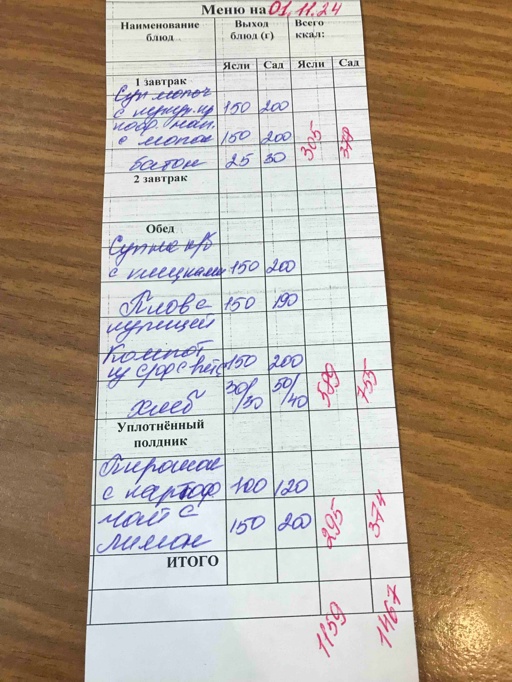 Меню на 01.11.24
Наименование блюд Выход блюд (г) Всего ккал:
Ясли Сад Ясли Сад
1 завтрак
Суп молоч
с
150 200
коф. нап.
с молок 150 200 305
батон 25 30
2 завтрак
Обед
Суп на к/б
с клецками 150 200
Плов с 150 190
курицей
Компот
из с/ф с вит С 150 200
хлеб 30/30 50/40 589 755
Уплотнённый
полдник
Пирожок
с картоф 100 120
чай с
лимон 150 200 295 374
ИТОГО
1159 1467